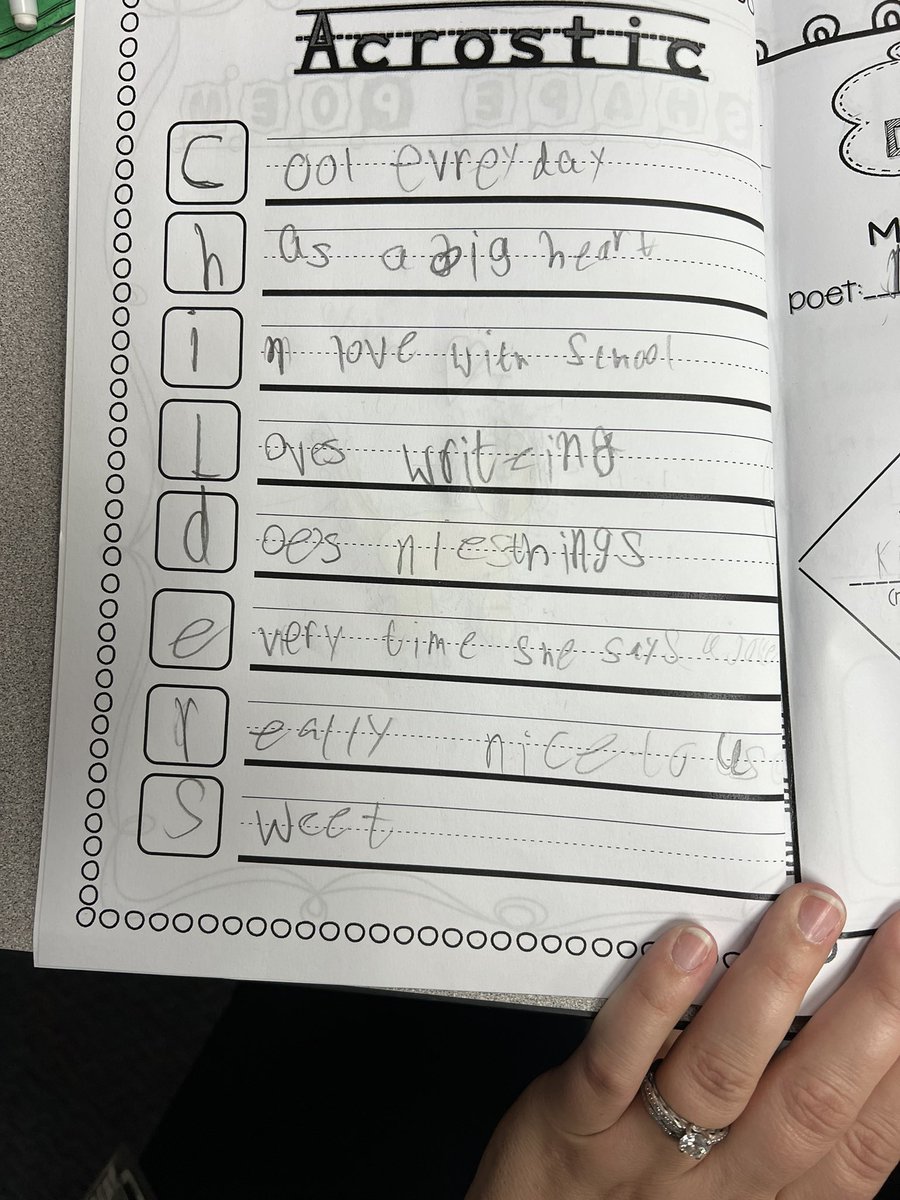 Acrostic
SHAPE POEM
Cool evreyday
has a big heart
in love with school
Loves writing
does niesthings
every time she says a joke
really nice to us
Sweet
M
poet:
K